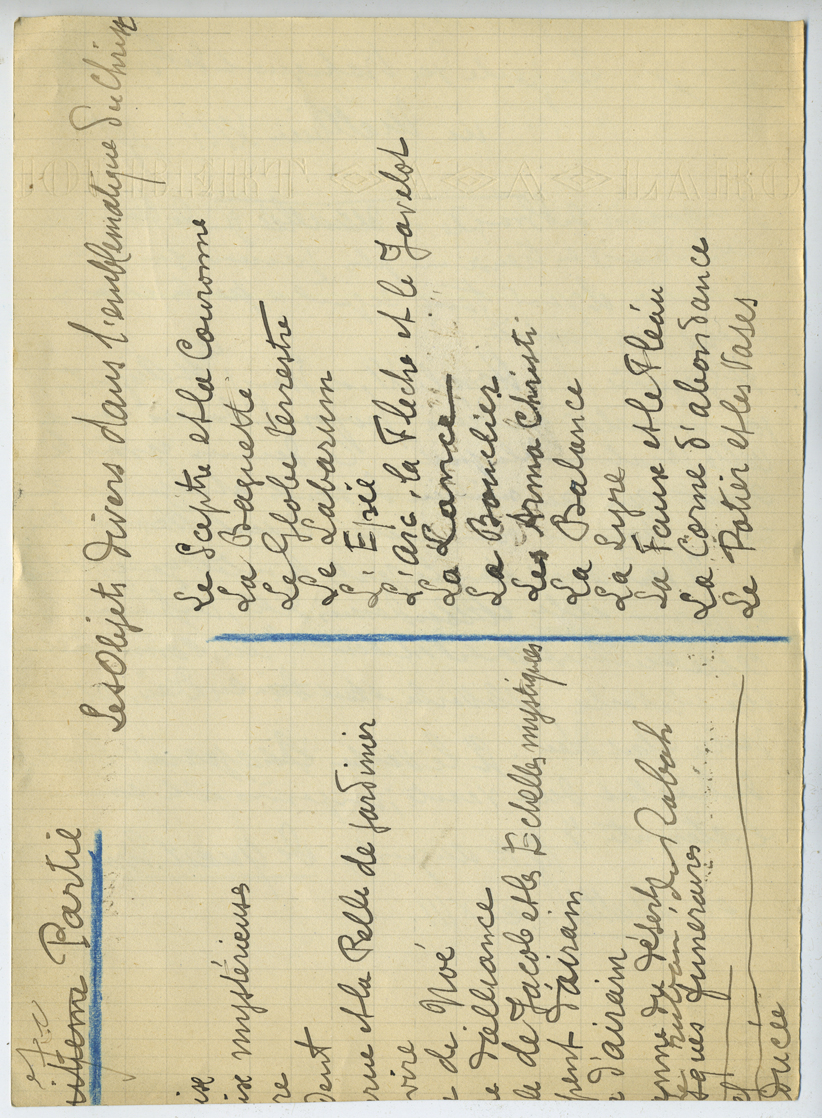 Partie
Les Objets divers dans l'emblématique du Christ
ix
ix mystérieuse
re
dent
rue et la Pelle de jardinier
vire
de Noé
e d'alliance
le de Jacob et les Echelles mystiques
pent d'airain
d'airain
onne du désert
de Rahab
ques funéraires
ducée
Le Sceptre et la Couronne
La Baguette
Le Globe terrestre
Le Labarum
L'Epée
L'Arc, la Flèche et le Javelot
La Lance
Le Bouclier
Les Arma Christi
La Balance
La Lyre
La Faux et le Fléau
La Corne d'abondance
Le Potier et les Vases